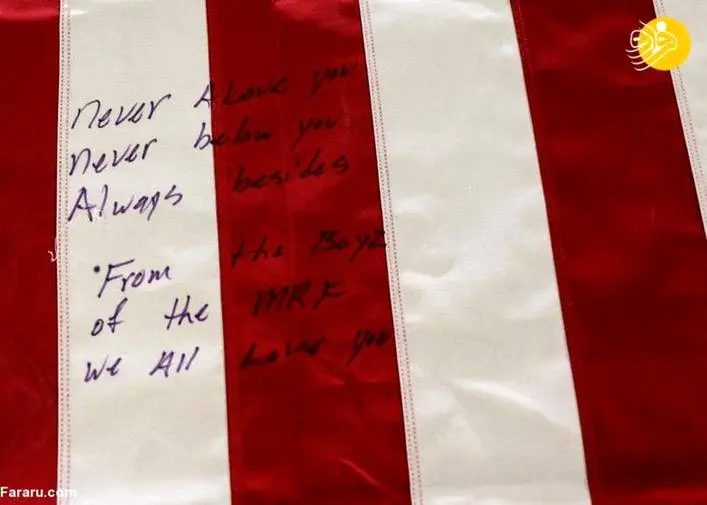 never Above you
never below you
Always besides
From the Boyz
of the MRF
We All Love you
Fararu.com